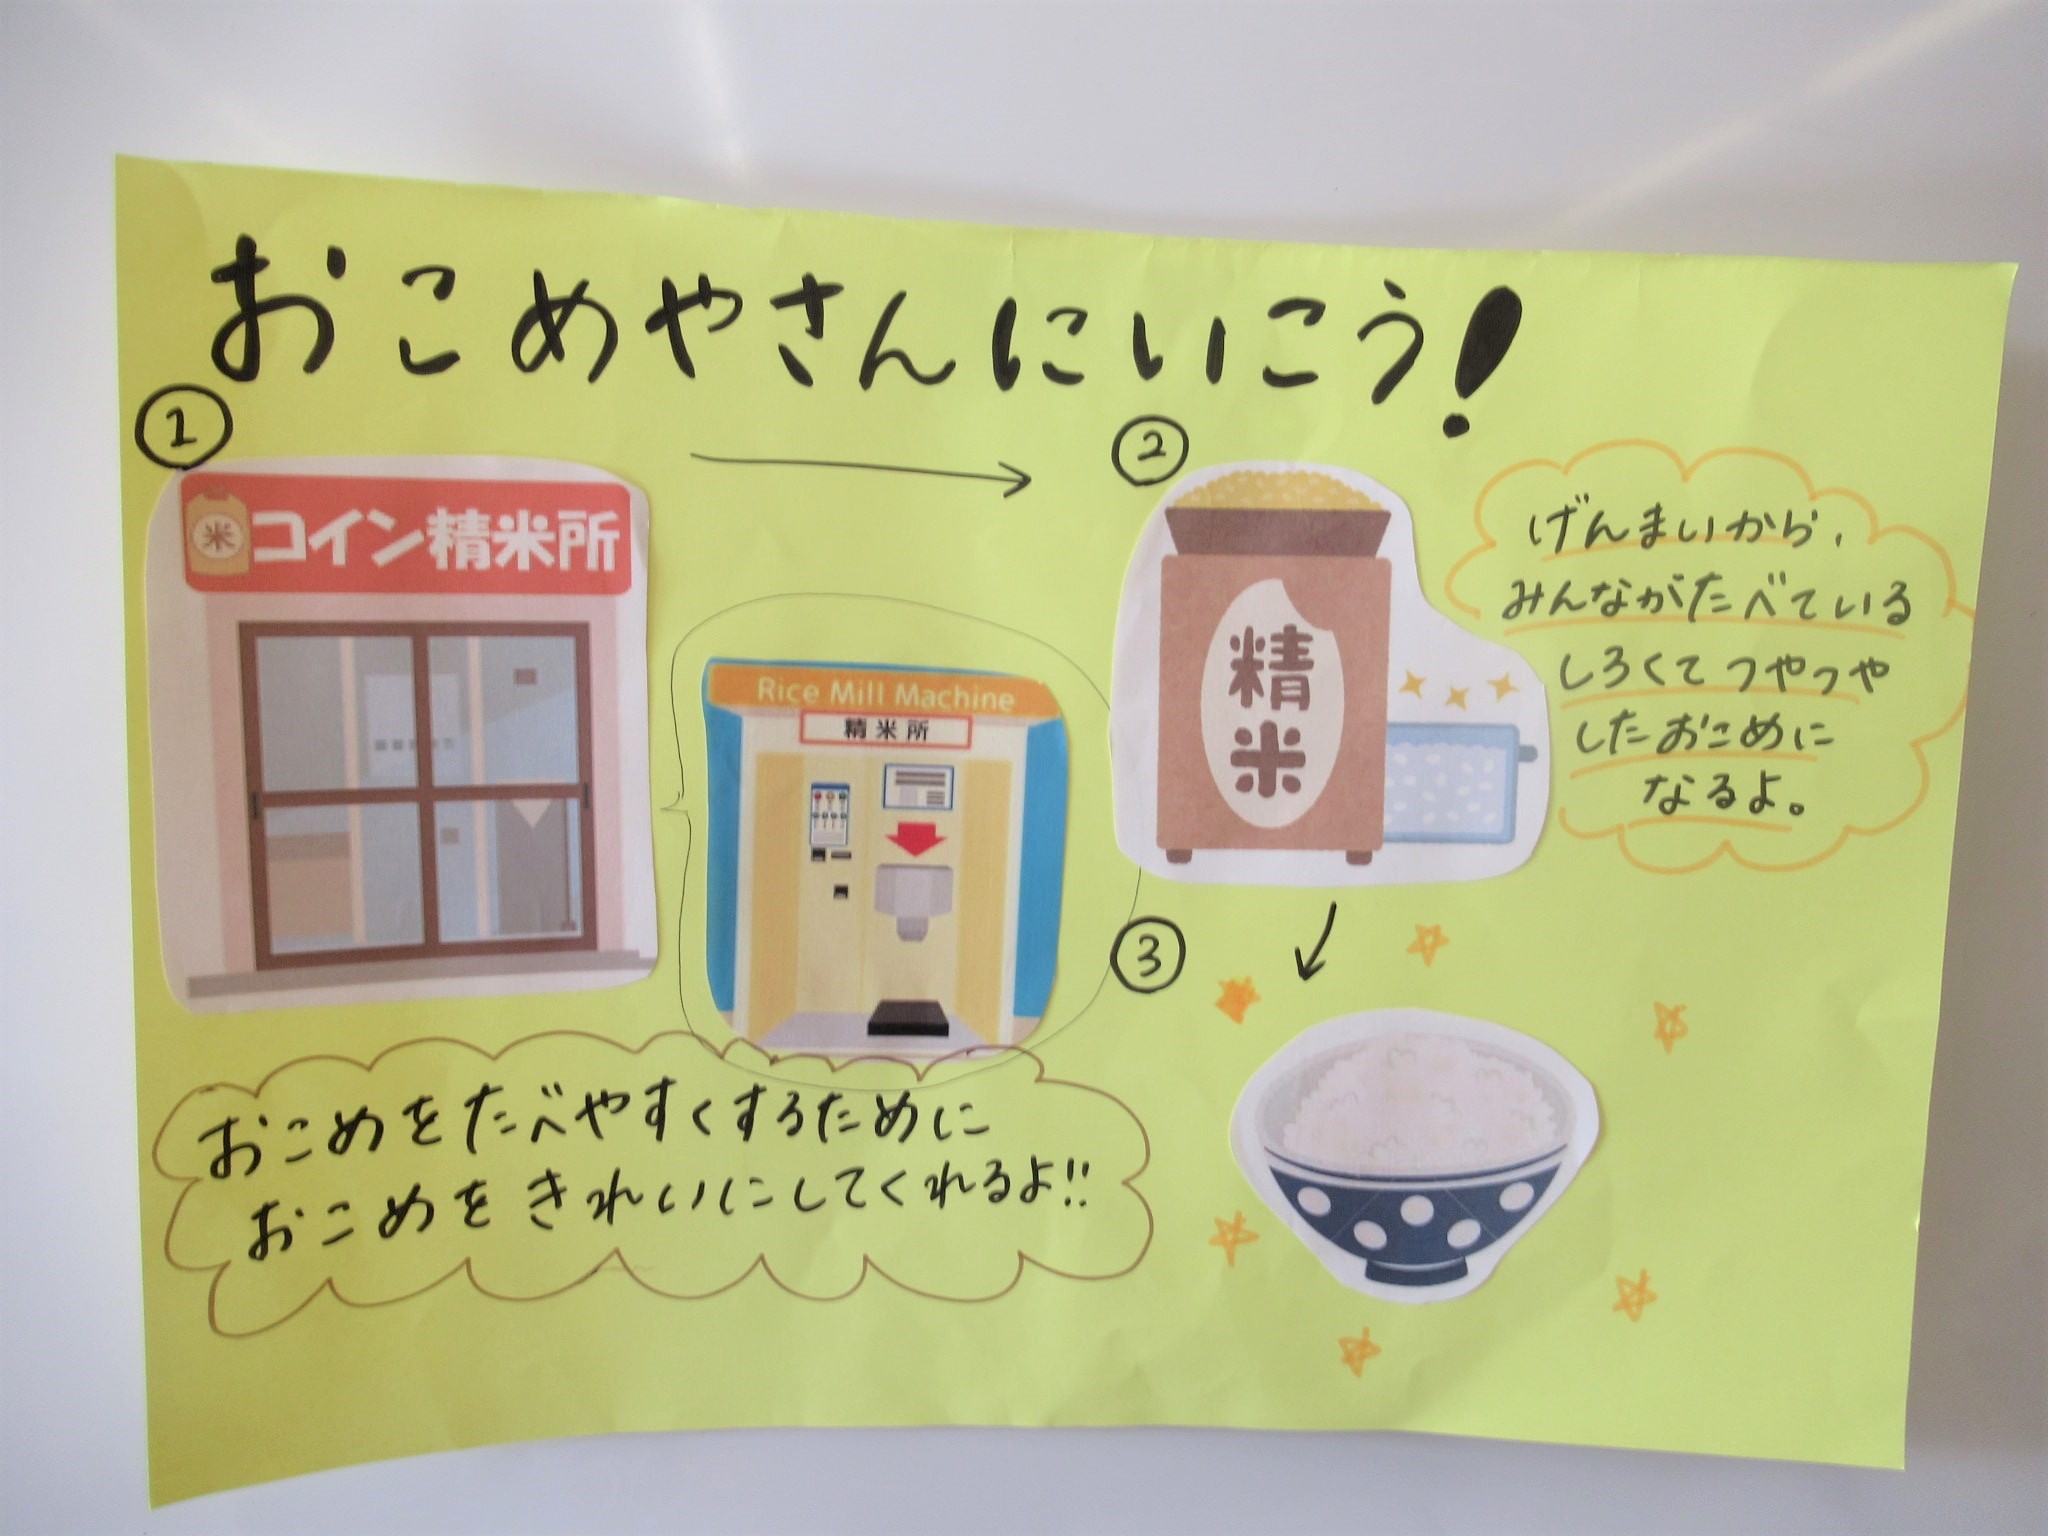 おこめやさんにいこう!
①
米
コイン精米所
Rice Mill Machine
精米所
おこめをたべやすくするために
おこめをきれいにしてくれるよ!!
②
精
米
げんまいから、
みんながたべている
しろくてつやつや
したおこめに
なるよ。
③